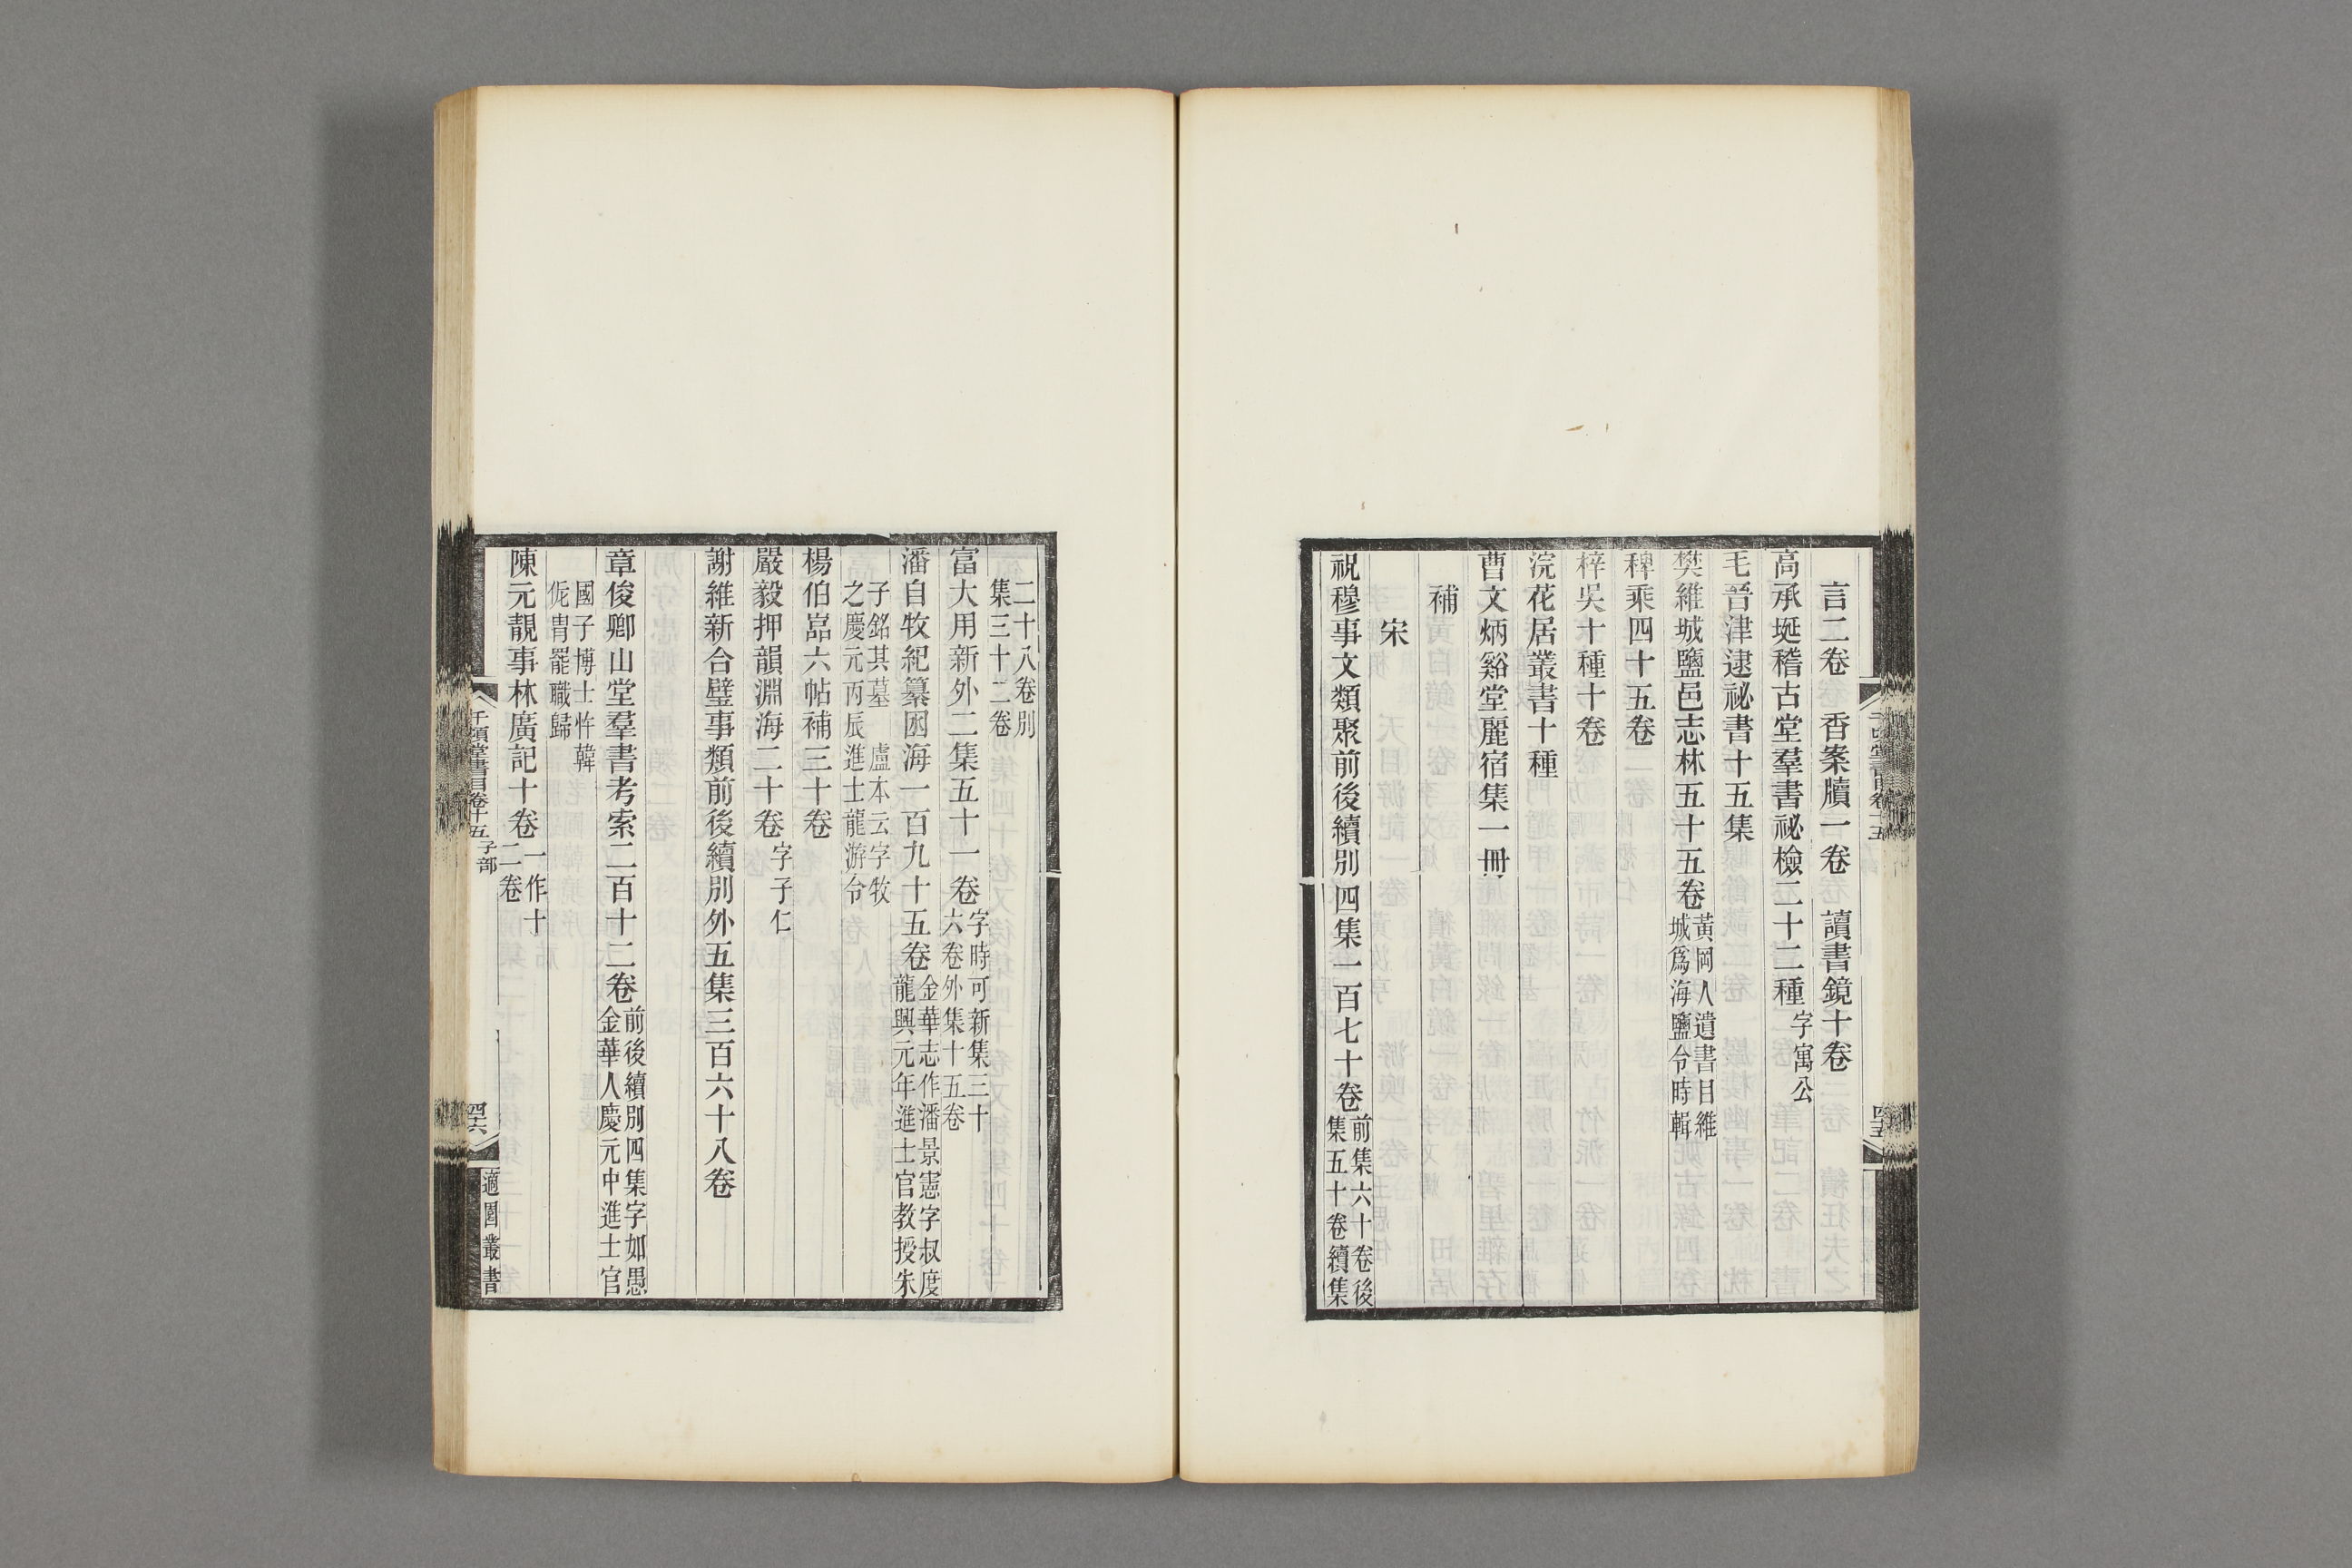 言二卷　香案牘一卷　讀書鏡十卷
高承埏稽古堂羣書祕檢二十二種字寓公
毛晉津逮祕書十五集
樊維城鹽邑志林五十五卷黃岡人遺書目維
城爲海鹽令時輯
稗乘四十五卷
梓吳十種十卷
浣花居叢書十種
曹文炳谿堂麗宿集一冊
補
宋
祝穆事文類聚前後續別四集一百七十卷前集六十卷後
集五十卷續集
二十八卷別
集三十二卷
富大用新外二集五十一卷字時可新集三十
六卷外集十五卷
潘自牧紀纂囦海一百九十五卷金華志作潘景憲字叔度
龍興元年進士官教授朱
子銘其墓　盧本云字牧
之慶元丙辰進士龍游令
楊伯嵓六帖補三十卷
嚴毅押韻淵海二十卷字子仁
謝維新合璧事類前後續別外五集三百六十八卷
章俊卿山堂羣書考索二百十二卷前後續別四集字如愚
金華人慶元中進士官
國子博士忤韓
侂胄罷職歸
陳元靚事林廣記十卷一作十
二卷
千頃堂書目卷十五　子部
四十六
適園叢書